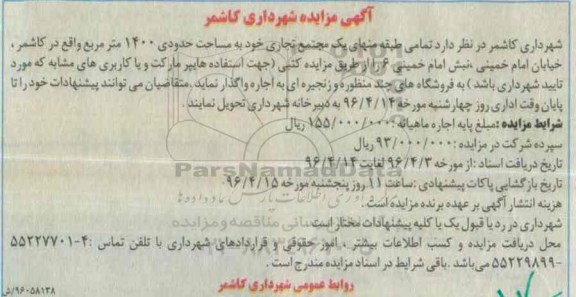 آگهی مزایده شهرداری کاشمر
شهرداری کاشمر در نظر دارد تمامی طبقه منهای یک مجتمع تجاری خود به مساحت حدودی ۱۴۰۰ متر مربع واقع در کاشمر ،
خیابان امام خمینی ،نبش امام خمینی ۶ را از طریق مزایده کتبی (جهت استفاده هایپر مارکت و یا کاربری های مشابه که مورد
تایید شهرداری باشد) به فروشگاه های چند منظوره و زنجیره ای به اجاره واگذار نماید .متقاضیان می توانند پیشنهادات خود را تا
پایان وقت اداری روز چهارشنبه مورخه ۹۶/۴/۱۴ به دبیرخانه شهرداری تحویل نمایند .
شرایط مزایده :مبلغ پایه اجاره ماهیانه :۱۵۵/۰۰۰/۰۰۰ ریال
سپرده شرکت در مزایده :۹۳/۰۰۰/۰۰۰ ریال
تاریخ دریافت اسناد :از مورخه ۹۶/۴/۳ لغایت ۹۶/۴/۱۴
تاریخ بازگشایی پاکات پیشنهادی :ساعت ۱۱ روز پنجشنبه مورخه ۹۶/۴/۱۵
هزینه انتشار آگهی بر عهده برنده مزایده است .
شهرداری در رد یا قبول یک یا کلیه پیشنهادات مختار است
محل دریافت مزایده و کسب اطلاعات بیشتر ، امور حقوقی و قراردادهای شهرداری با تلفن تماس :۴-۵۵۲۲۷۷۰۱
-۵۵۲۲۹۸۹۹ می باشد .باقی شرایط در اسناد مزایده مندرج است .
روابط عمومی شهرداری کاشمر
۹۶۰۵۸۱۳۸/ش
ParsNamadData